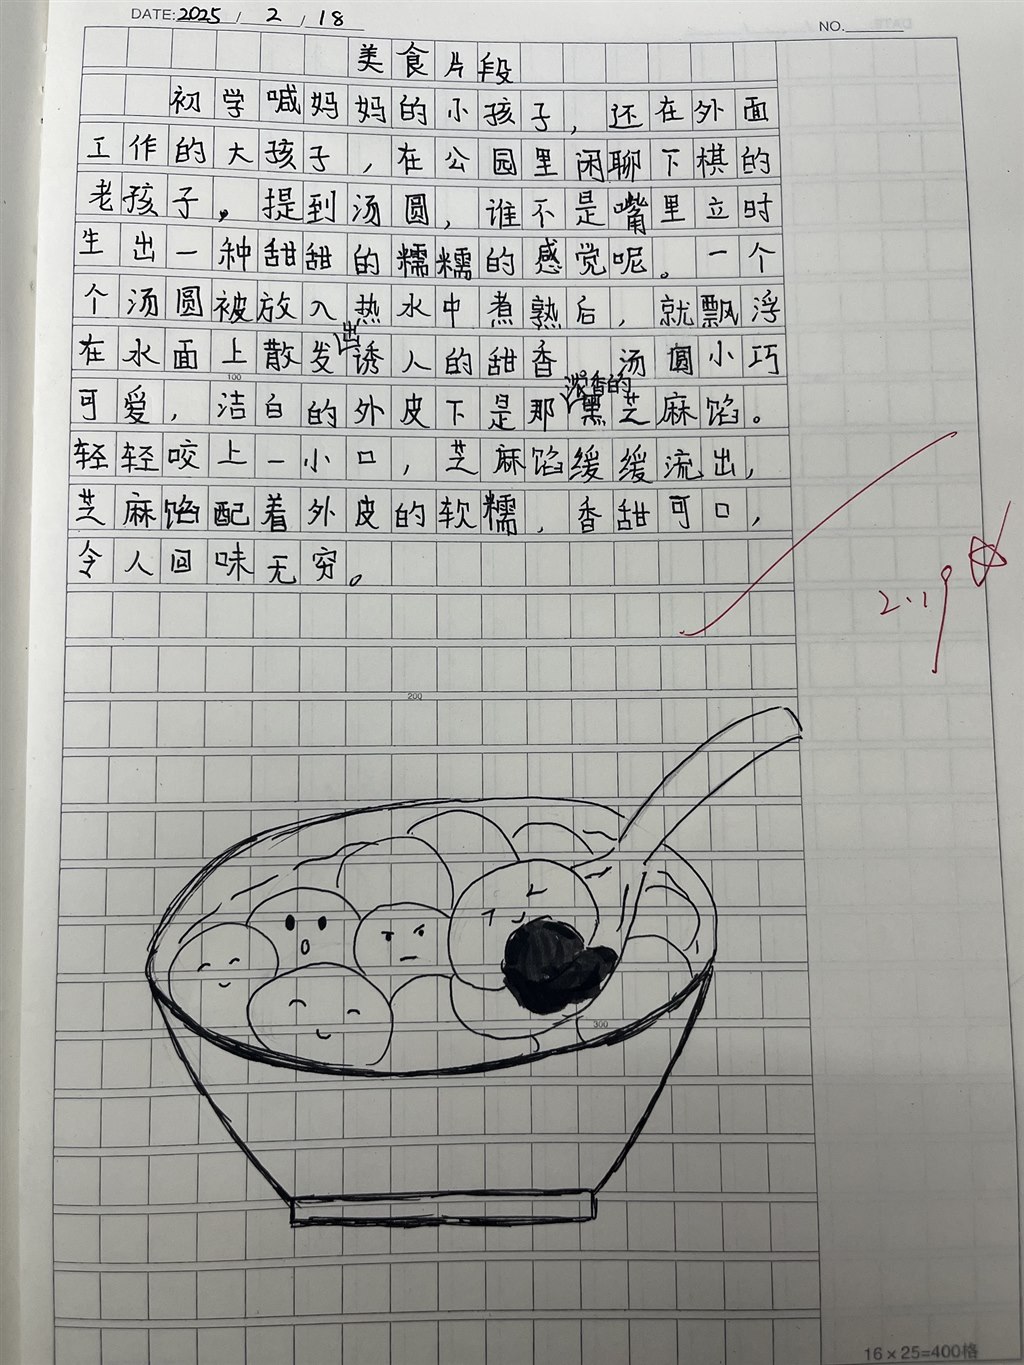 DATE: 2025 / 2 / 18
NO.
美食片段
初学喊妈妈的小孩子，还在外面
工作的大孩子，在公园里闲聊下棋的
老孩子，提到汤圆，谁不是嘴里立时
生出一种甜甜的糯糯的感觉呢。一个
个汤圆被放入热水中煮熟后，就飘浮
在水面上散发出诱人的甜香 汤圆小巧
100
可爱，洁白的外皮下是那浓香的黑芝麻馅。
轻轻咬上一小口，芝麻馅缓缓流出，
芝麻馅配着外皮的软糯，香甜可口，
令人回味无穷。
2.19
200
300
16×25=400格